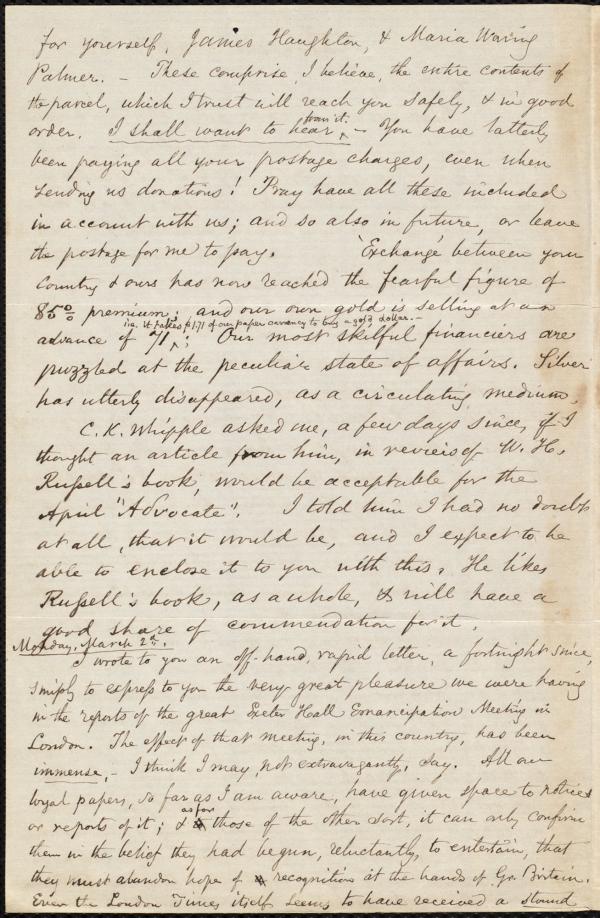 for yourself, James Haughton, & Maria Waring
Palmer. – These comprise, I believe, the entire contents of
the parcel, which I trust will reach you safely, & in good
order. I shall want to hear from it. – You have latterly
been paying all your postage charges, even when
sending us donations! Pray have all these included
in account with us; and so also in future, or leave
the postage for me to pay. 'Exchange' between your
country & ours has now reached the fearful figure of
85 o/o premium; and our own gold is selling at an
i.e. it takes $1.71 of our paper currency to buy a gold dollar. –
advance of 71; Our most skilful financiers are
puzzled at the peculiar state of affairs. Silver
has utterly disappeared, as a circulating medium.
C. K. Whipple asked me, a few days since, if I
thought an article from him, in review of W. H.
Russell's book, would be acceptable for the
April "Advocate". I told him I had no doubt
at all, that it would be, and I expect to be
able to enclose it to you with this. He likes
Russell's book, as a whole, & will have a
good share of commendation for it.
Monday, March 2d.
I wrote to you an off-hand, rapid letter, a fortnight since,
simply to express to you the very great pleasure we were having
in the reports of the great Exeter Hall Emancipation Meeting in
London. The effect of that meeting, in this country, has been
immense, – I think I may, not extravagantly, say. All our
loyal papers, so far as I am aware, have given space to notices
or reports of it; & as for those of the other sort, it can only confirm
them in the belief they had begun, reluctantly, to entertain, that
they must abandon hope of recognition at the hands of Gr. Britain.
Even the London Times itself seems to have received a stound